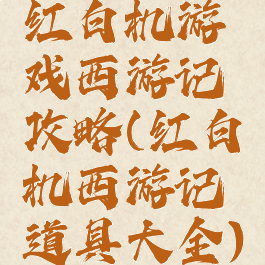 红白机游
戏西游记
攻略(红白
机西游记
道具大全)